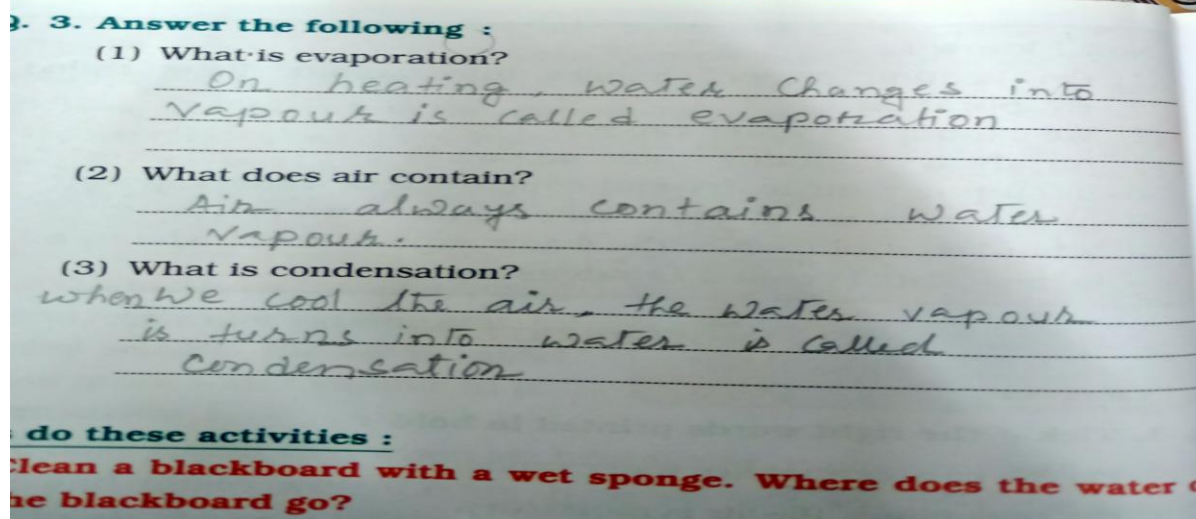 . 3. Answer the following :
(1) What is evaporation?
On heating, water changes into
vapour is called evaporation
(2) What does air contain?
Air always contains water
vapour.
(3) What is condensation?
when we cool the air, the water vapour
is turns into water is called
Condensation
do these activities :
Clean a blackboard with a wet sponge. Where does the water
he blackboard go?